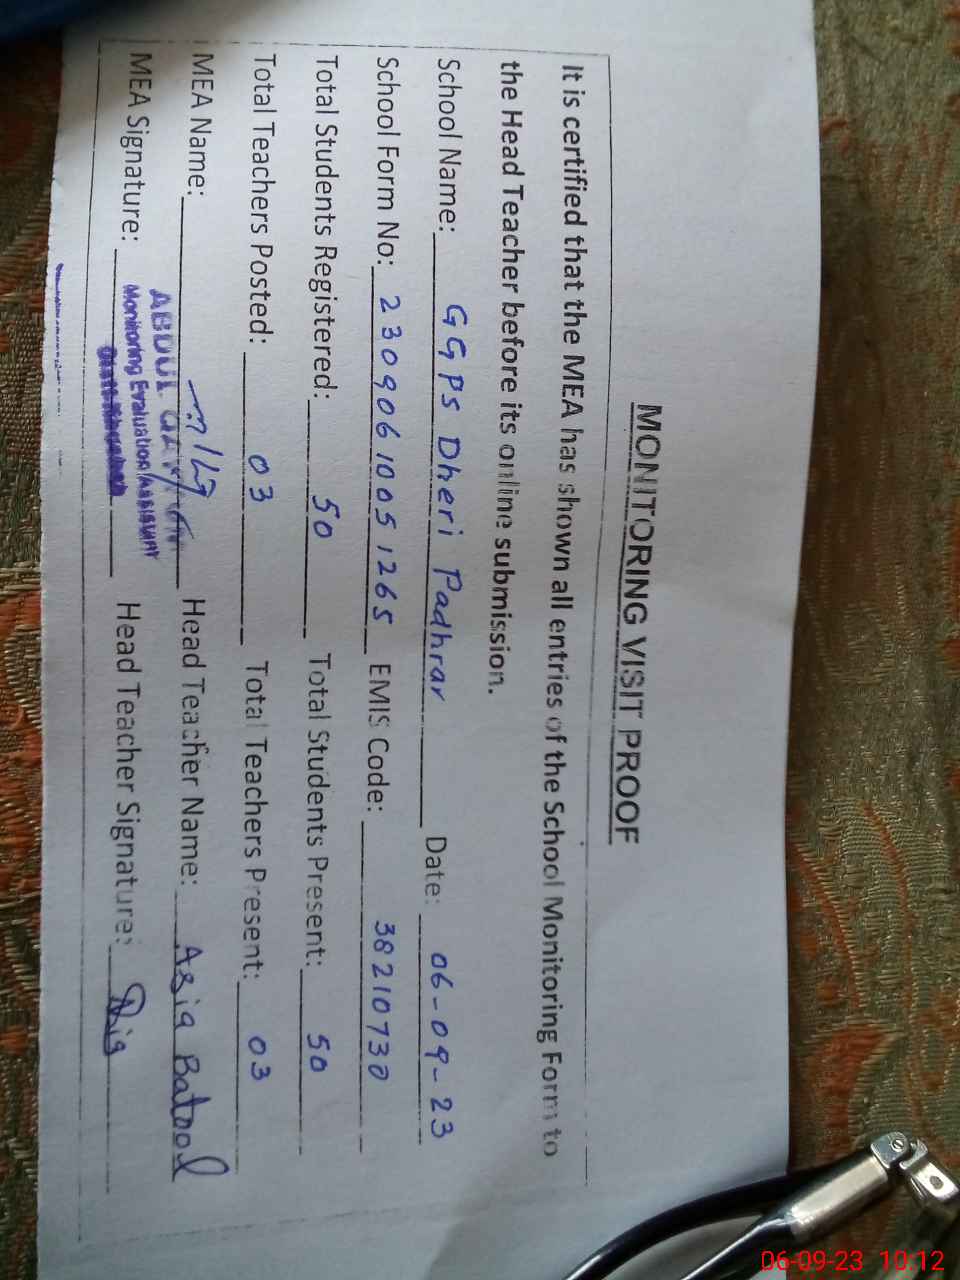 MONITORING VISIT PROOF
It is certified that the MEA has shown all entries of the School Monitoring Form to
the Head Teacher before its online submission.
School Name: GGPS Dheri Padhrar Date: 06-09-23
School Form No: 23090610051265 EMIS Code: 38210730
Total Students Registered: 50 Total Students Present: 50
Total Teachers Posted: 03 Total Teachers Present: 03
MEA Name: Head Teacher Name: Asia Batool
ABDUL
Monitoring Evaluation Assistant
MEA Signature: Head Teacher Signature:
06-09-23 10:12